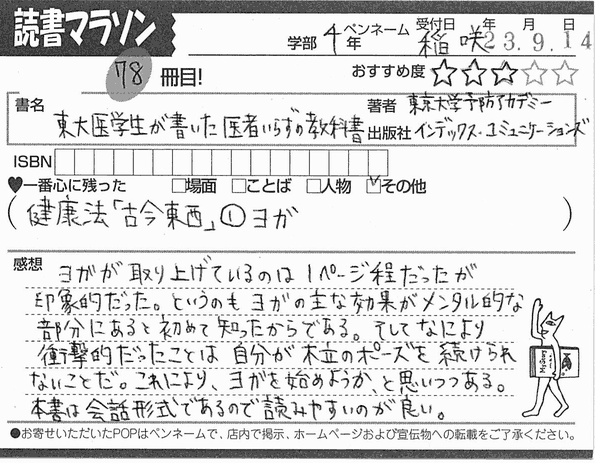 読書マラソン
学部 4年 ペンネーム 稲咲 受付日 年 月 日
23.9.14
78冊目!
おすすめ度 ★★★☆☆
書名 東大医学生が書いた医者いらずの教科書
著者 東京大学予防アカデミー
出版社 インデックス・コミュニケーションズ
ISBN
♥一番心に残った □場面 □ことば □人物 ☑その他
(健康法「古今東西」①ヨガ)
感想
ヨガが取り上げているのは1ページ程だったが
印象的だった。というのもヨガの主な効果がメンタル的な
部分にあると初めて知ったからである。そしてなにより
衝撃的だったことは自分が木立のポーズを続けられ
ないことだ。これにより、ヨガを始めようか、と思いつつある。
本書は会話形式であるので読みやすいのが良い。
●お寄せいただいたPOPはペンネームで、店内で掲示、ホームページおよび宣伝物への転載をご了承ください。